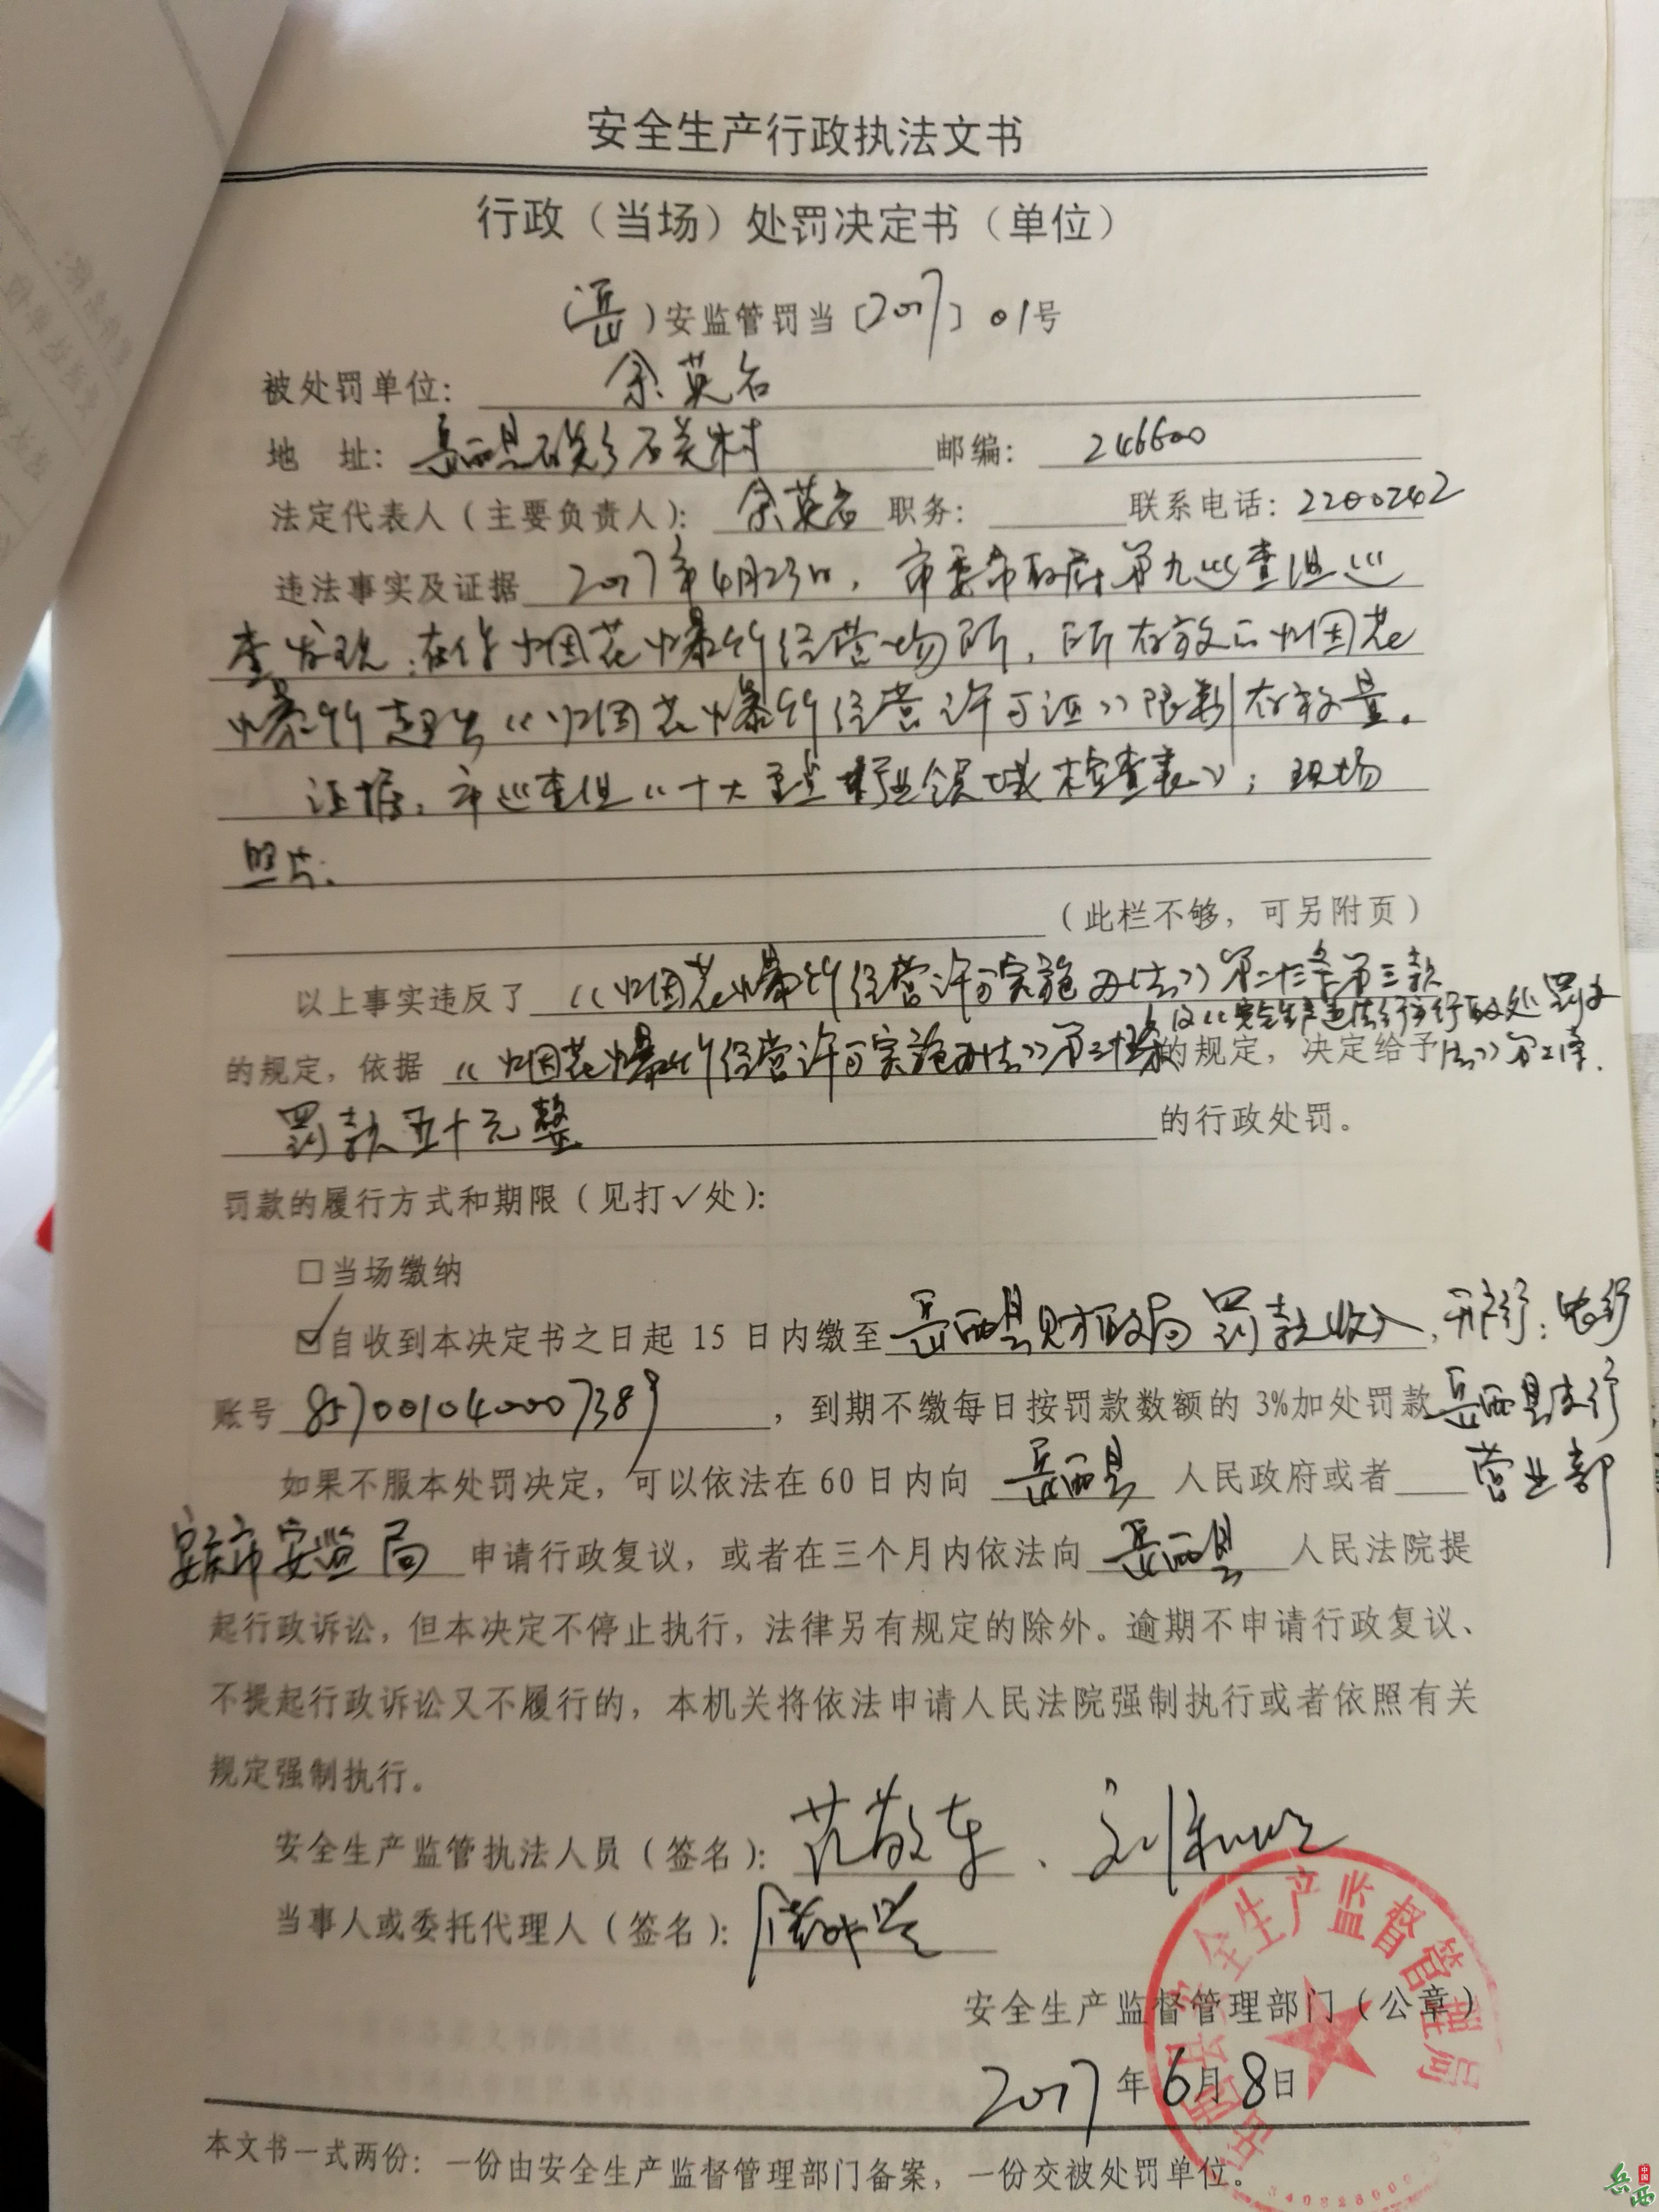 安全生产行政执法文书
行政（当场）处罚决定书（单位）
（岳）安监管罚当〔2017〕01号
被处罚单位： 余英名
地 址： 岳西县石关乡石关村 邮编： 246600
法定代表人（主要负责人）： 余英名 职务： 联系电话：2200242
违法事实及证据 2017年4月23日，市委市政府第九巡查组巡
查发现：在你烟花爆竹经营场所，所存放的烟花
爆竹超出《烟花爆竹经营许可证》限制存放量。
证据：市巡查组《十大重点行业领域检查表》；现场
照片。
（此栏不够，可另附页）
以上事实违反了《烟花爆竹经营许可实施办法》第二十二条第三款
及《安全生产违法行为行政处罚办
的规定，依据《烟花爆竹经营许可实施办法》第三十条的规定，决定给予法》第 条.
罚款五十元整 的行政处罚。
罚款的履行方式和期限（见打√处）：
□当场缴纳
☑自收到本决定书之日起 15 日内缴至岳西县财政局罚款收入，开户行：农行
账号 857001040007389 ，到期不缴每日按罚款数额的 3%加处罚款 岳西县支行
如果不服本处罚决定，可以依法在 60 日内向 岳西县 人民政府或者 营业部
安庆市安监局 申请行政复议，或者在三个月内依法向 岳西县 人民法院提
起行政诉讼，但本决定不停止执行，法律另有规定的除外。逾期不申请行政复议、
不提起行政诉讼又不履行的，本机关将依法申请人民法院强制执行或者依照有关
规定强制执行。
安全生产监管执法人员（签名）： 范敬东 、
当事人或委托代理人（签名）：
安全生产监督管理部门（公章）
岳西县安全生产监督管理局
2017 年 6 月 8 日
本文书一式两份：一份由安全生产监督管理部门备案，一份交被处罚单位。
中国
岳西